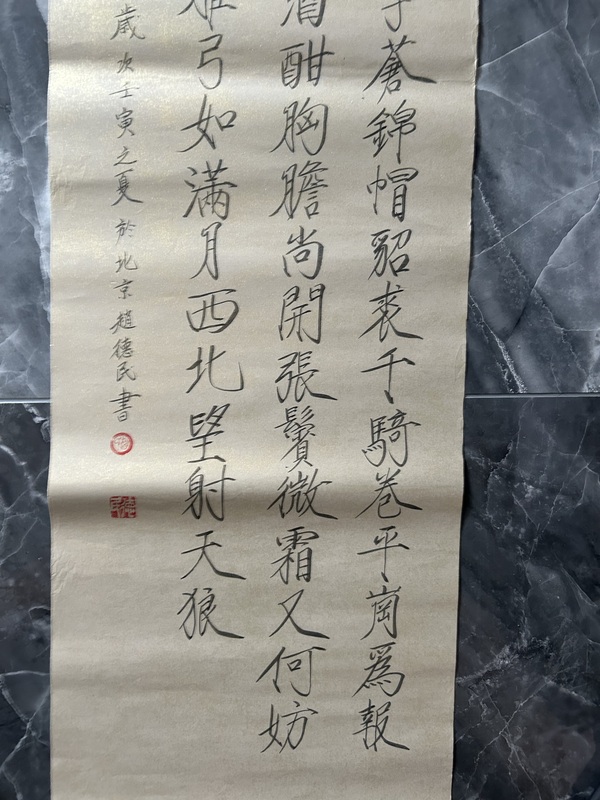 蒼錦帽貂裘千騎卷平崗爲報
酒酣胸膽尚開張鬢微霜又何妨
弓如滿月西北望射天狼
歲次壬寅之夏於北京趙德民書